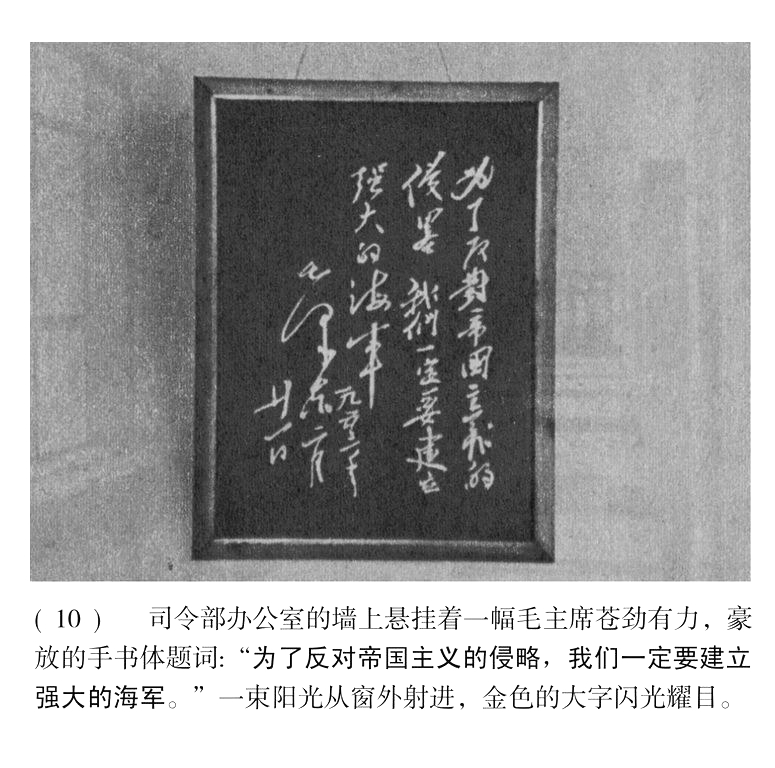 为了反對帝国主義的
侵畧 我们一定要建立
强大的海军
一九五三年
毛泽东 二月
廿一日
(10) 司令部办公室的墙上悬挂着一幅毛主席苍劲有力，豪
放的手书体题词：“为了反对帝国主义的侵略，我们一定要建立
强大的海军。”一束阳光从窗外射进，金色的大字闪光耀目。